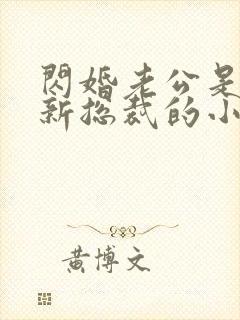 閃婚老公是
新總裁的小
黃博文